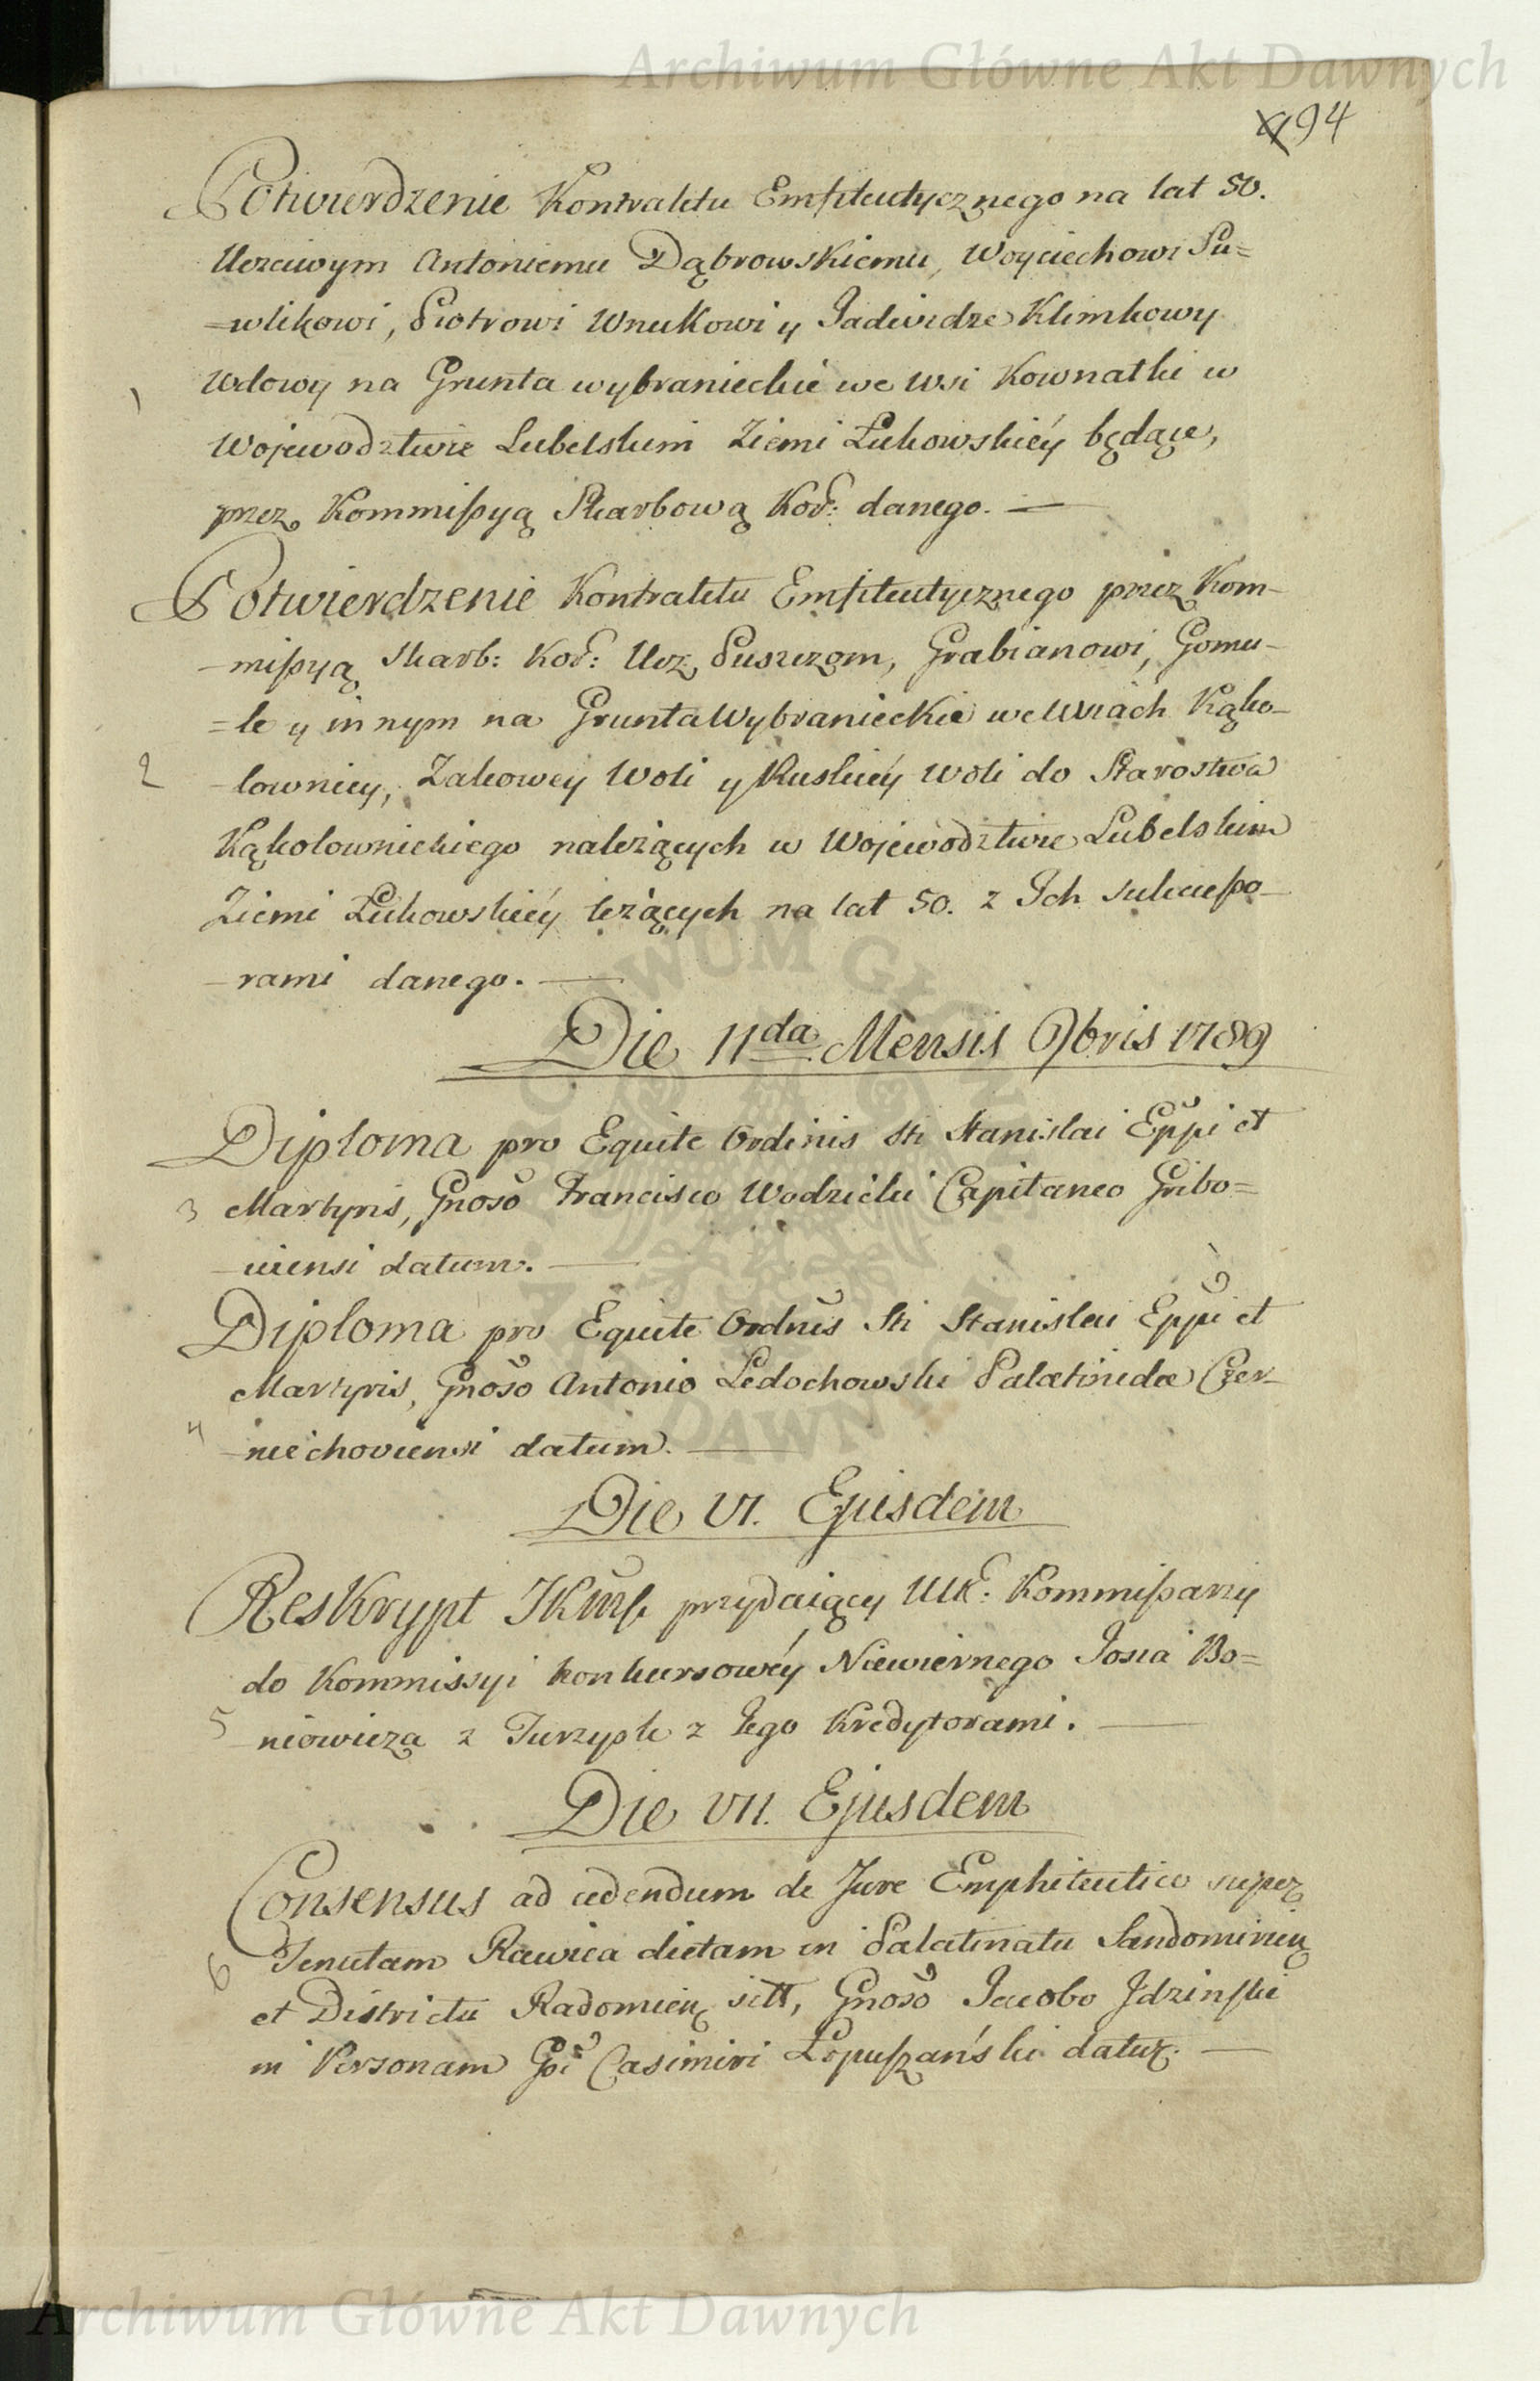 Archiwum Główne Akt Dawnych
94
Potwierdzenie Kontraktu Emfiteutycznego na lat 50.
Uczciwym Antoniemu Dąbrowskiemu, Woyciechowi Pa=
=wlikowi, Piotrowi Wnukowi y Jadwidze Klimkowy
Wdowy na Grunta wybranieckie we wsi Kownatki w
1
Województwie Lubelskim Ziemi Łukowskiéy będące,
przez Kommißyą Skarbową Kor: danego. —
Potwierdzenie Kontraktu Emfiteutycznego przez Kom-
-mißyą Skarb: Kor: Ucz, Puszczom, Grabianowi, Gomu-
=le y innym na Grunta Wybranieckie we Wsiach Kąko-
2
-lownicy, Zakowey Woli y Ruskiéy Woli do Starostwa
Kąkolownickiego należących w Województwie Lubelskim
Ziemi Łukowskiéy leżących na lat 50. z Ich Sukceßo-
-rami danego. —
Die 11da Mensis 9bris 1789
Diploma pro Equite Ordinis Sti Stanislai Eppi et
3 Martyris, Gnoso Francisco Wodzicki Capitaneo Gribo=
-viensi datum. —
Diploma pro Equite Ordnis Sti Stanislai Eppi et
Martyris, Gnoso Antonio Ledochowski Palatinidae Czer-
4 -niechoviensi datum. —
Die VI. Ejusdem
Reskrypt JKMsk przydaiący Kommißarzy
do Kommissyi konkursowéy Niewiernego Josia Bo=
5 niowicza z Turzysk z Jego Kredytorami. —
Die VII. Ejusdem
Consensus ad cedendum de Jure Emphiteutico super
6 Tenutam Rawica dictam in Palatinatu Sandomirien
et Districtu Radomien sitt, Gnoso Jacobo Jdzinski
in Personam Gsi Casimiri Łopußzański datus. —
Archiwum Główne Akt Dawnych